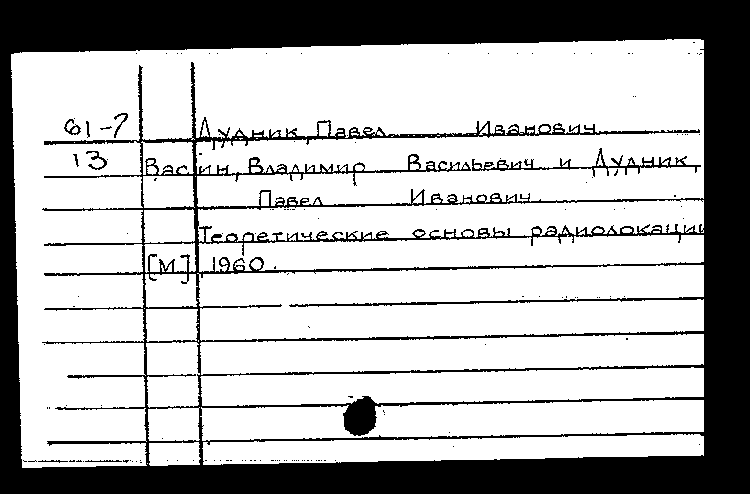 61-7 Дудник, Павел Иванович
13 Васин, Владимир Васильевич и Дудник,
Павел Иванович.
Теоретические основы радиолокации
[М], 1960.